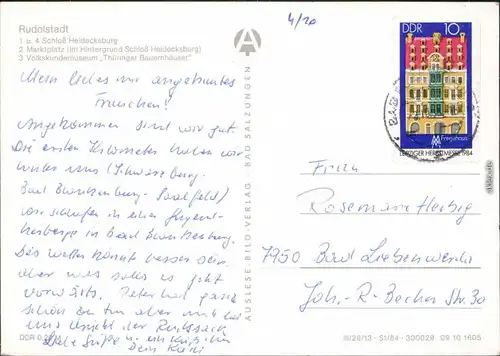 Rudolstadt
1 u. 4 Schloß Heidecksburg
2 Marktplatz (im Hintergrund Schloß Heidecksburg)
3 Volkskundemuseum „Thüringer Bauernhäuser"
4/20
DDR 10
Fregehaus
LEIPZIGER HERBSTMESSE 1984
Mein liebes mir angetrautes
Frauchen!
Angekommen sind wir gut.
Die ersten Kilometer haben wir
unter uns (Schwarzburg-
Bad Blankenburg - Saalfeld)
wir schlafen in einer Jugend-
herberge in Bad Blankenburg.
Das Wetter könnte besser sein,
aber was solls es geht
vorwärts. Peter hat ganz
schön zu tun aber mit
uns der Rucksack
Liebe Grüße u. ein Küßchen
Dein
AUSLESE-BILD-VERLAG · BAD SALZUNGEN
Frau
Rosemarie Herbig
7950 Bad Liebenwerda
Joh.-R.-Becher Str. 30
DDR 0,20
III/28/13 · S1/84 · 300028 09 10 1605